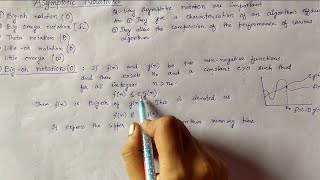 Asymptotic Notations
Q. Why Asymptotic notation are important
① Big oh notation (O)
Or ① They give a characterization of an algorithm
② Big omega notation (Ω)
② They allow the comparison of the performance of various algorithm
③ Theta notation (θ)
④ Little-oh notation
⑤ Little omega
Big-oh notation (O) : If f(n) and g(n) be two non-negative functions
and there exists n₀ and a constant c>0 such that
for all integer n > n₀
f(n) ≤ c.g(n)
Then f(n) is Big-oh of g(n). This is denoted as
f(n)
It express the upper running time